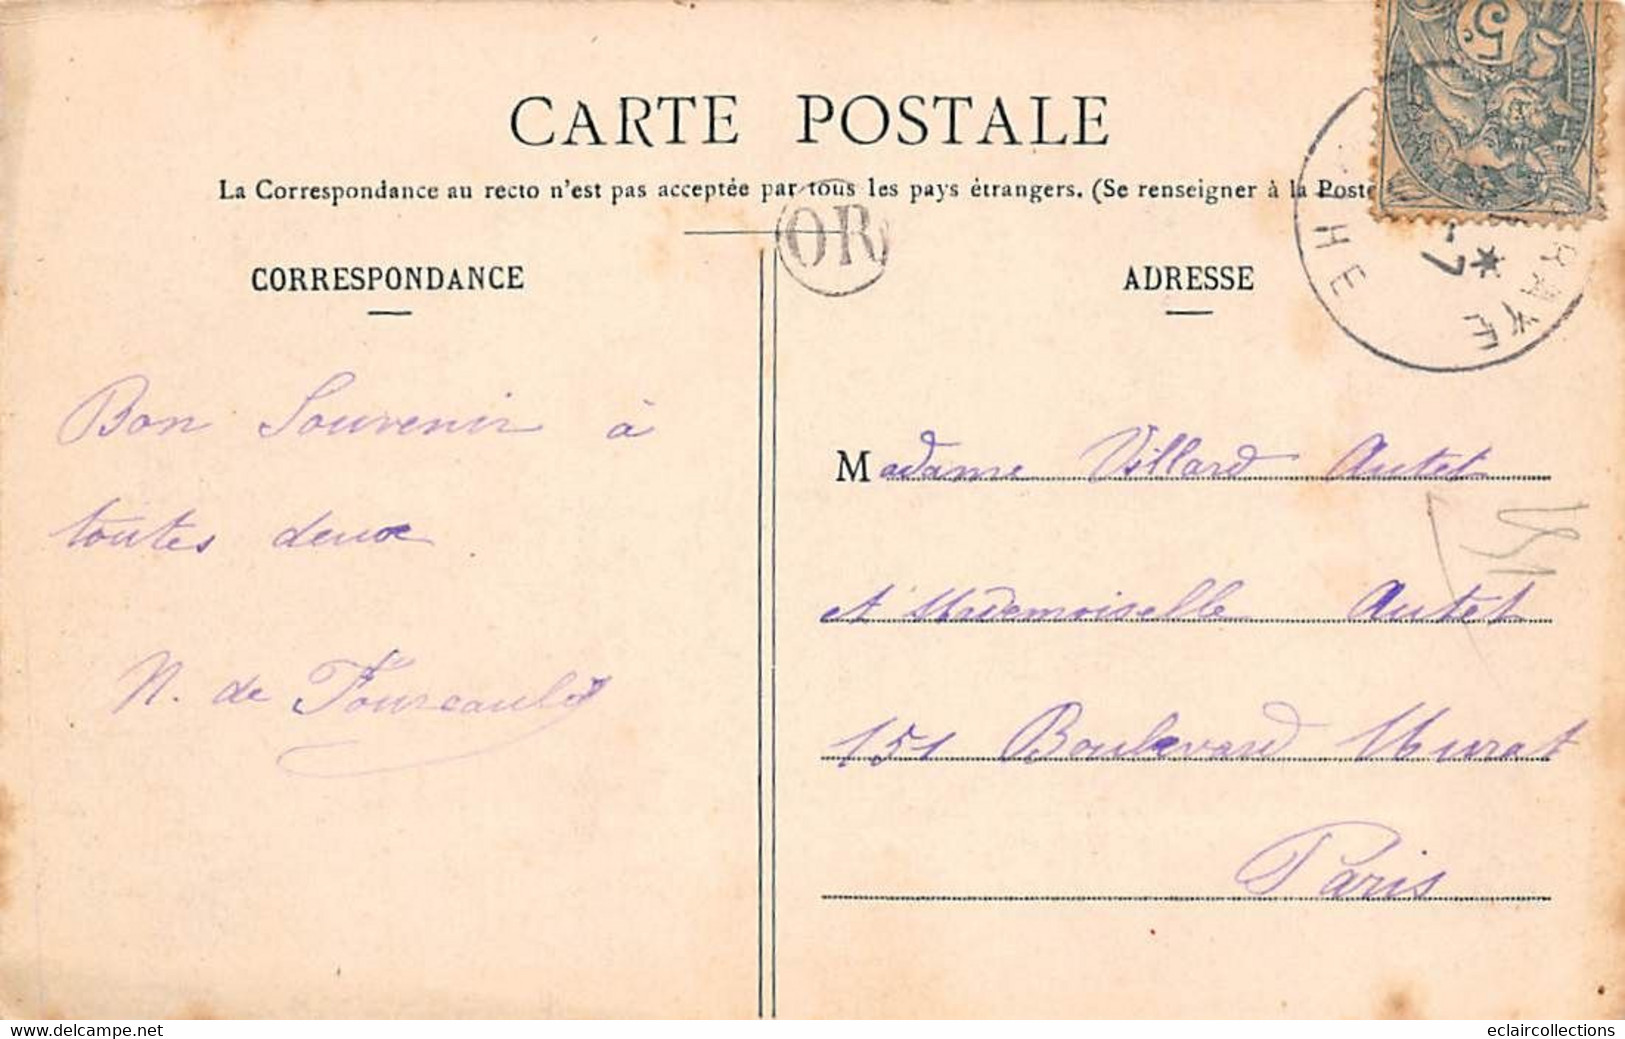 CARTE POSTALE
La Correspondance au recto n'est pas acceptée par tous les pays étrangers. (Se renseigner à la Poste
OR
CORRESPONDANCE
ADRESSE
5
HE
7
Bon Souvenir à
toutes deux
N. de Fourcauld
Madame Villard Autet
et Mademoiselle Autet
151 Boulevard Murat
Paris
151
eclaircollections